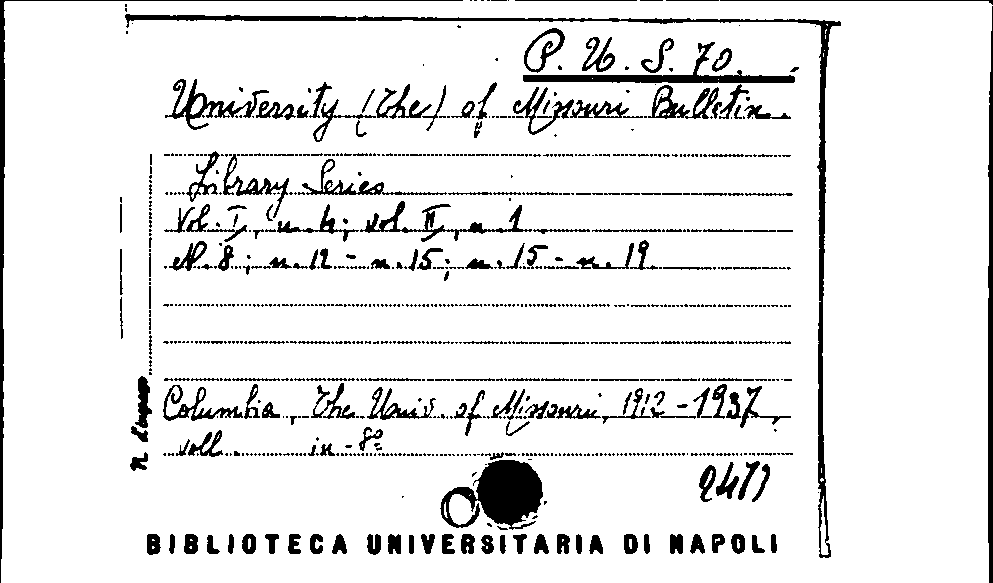 P. U. S. 70.
University (The) of Missouri Bulletin.
Library Series
Vol. I, n. 4; vol. II, n. 1.
N. 8; n. 12 - n. 15; n. 15 - n. 19.
Columbia, The Univ. of Missouri, 1912-1937,
voll. in-8º
N. d'ingresso
BIBLIOTECA UNIVERSITARIA DI NAPOLI